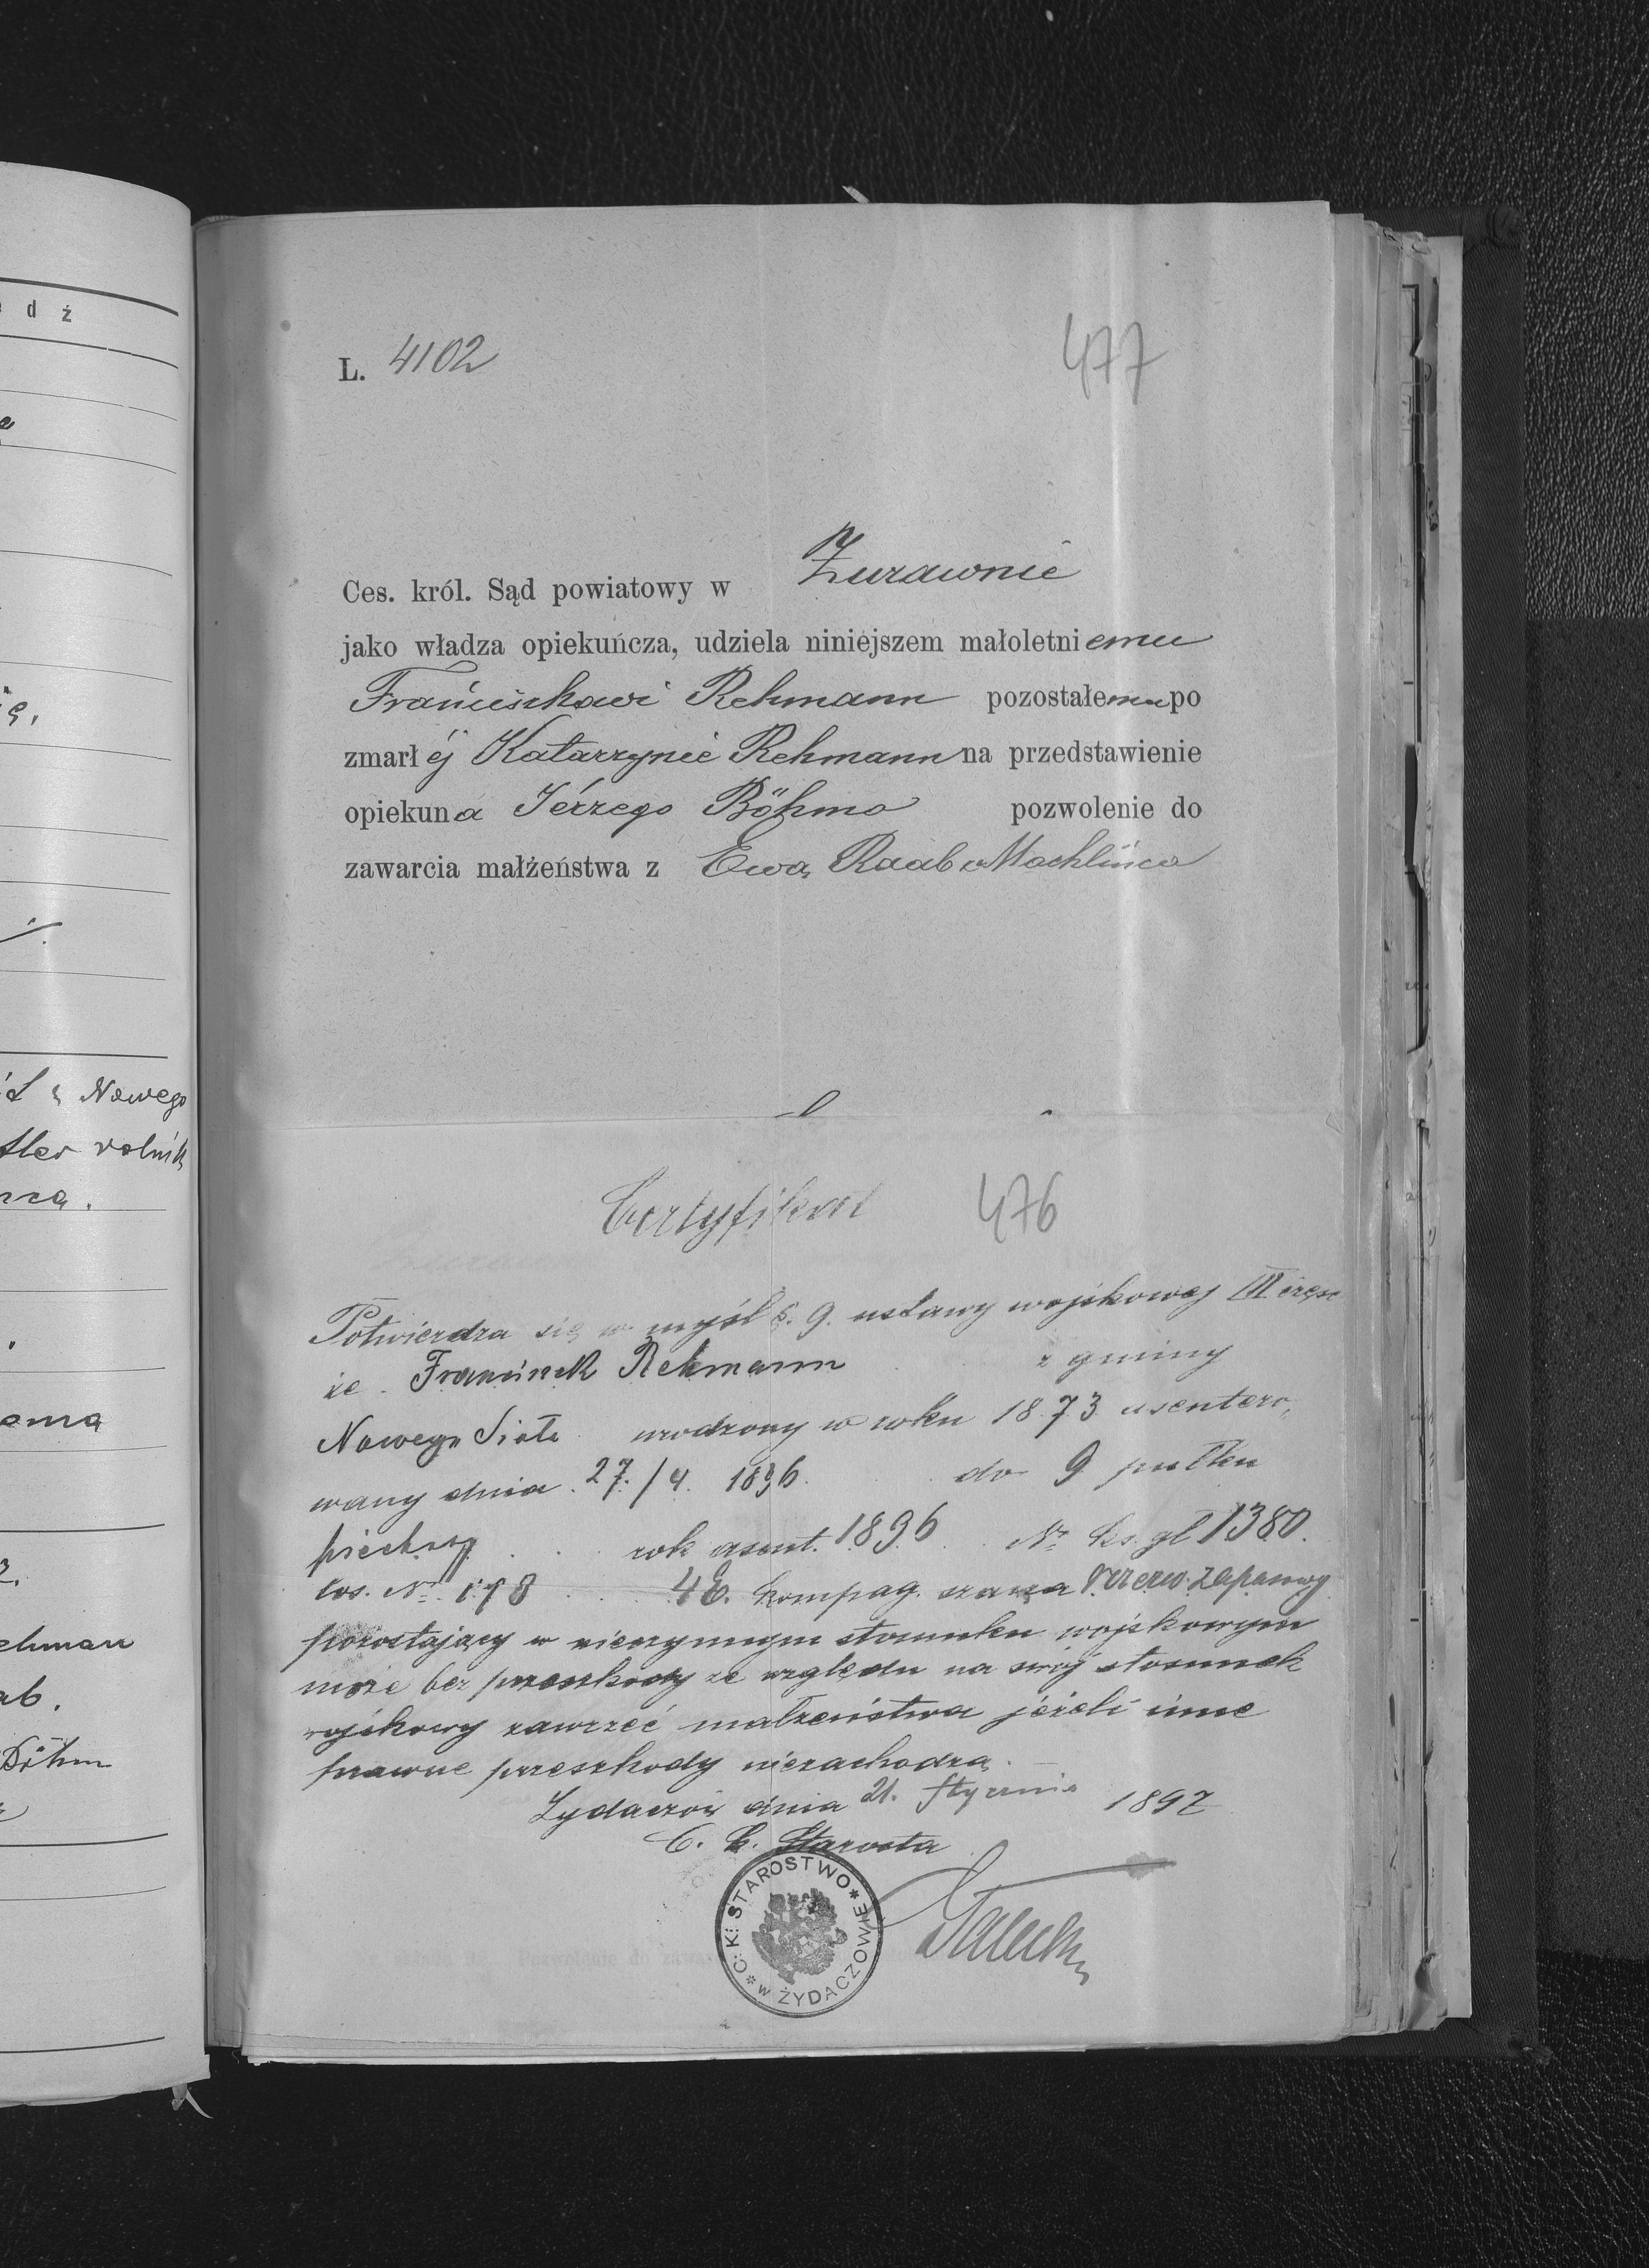 d ź
ę.
ł z Nowego
tler rolnik
rzą.
ehman
ab.
Böhm
L. 4102
477
Ces. król. Sąd powiatowy w Żurawnie
jako władza opiekuńcza, udziela niniejszem małoletniemu
Franciszkowi Rehmann pozostałemu po
zmarłéj Katarzynie Rehmann na przedstawienie
opiekuna Jerzego Böhma pozwolenie do
zawarcia małżeństwa z Ewą Raab z Machlińca
Certyfikat 476
Potwierdza się w myśl §. 9. ustawy wojskowej III częsc
że Franciszek Rehmann z gminy
Nowego Sioła urodzony w roku 1873 asentero„
wany dnia 27./4. 1896. do 9 pułku
piechoty rok asent. 1896 Nr ks. gł 1380.
los. Nr 178 4 E. kompag. szarża rezerw. zapasowy
pozostający w nieczynnym stosunku wojskowym
może bez przeszkody ze względu na swój stosunek
wojskowy zawrzeć małżeństwa jeżeli inne
prawne przeszkody niezachodzą.
Żydaczów dnia 21. Stycznia 1897
C. k. Starosta
C. K. STAROSTWO w ŻYDACZOWIE